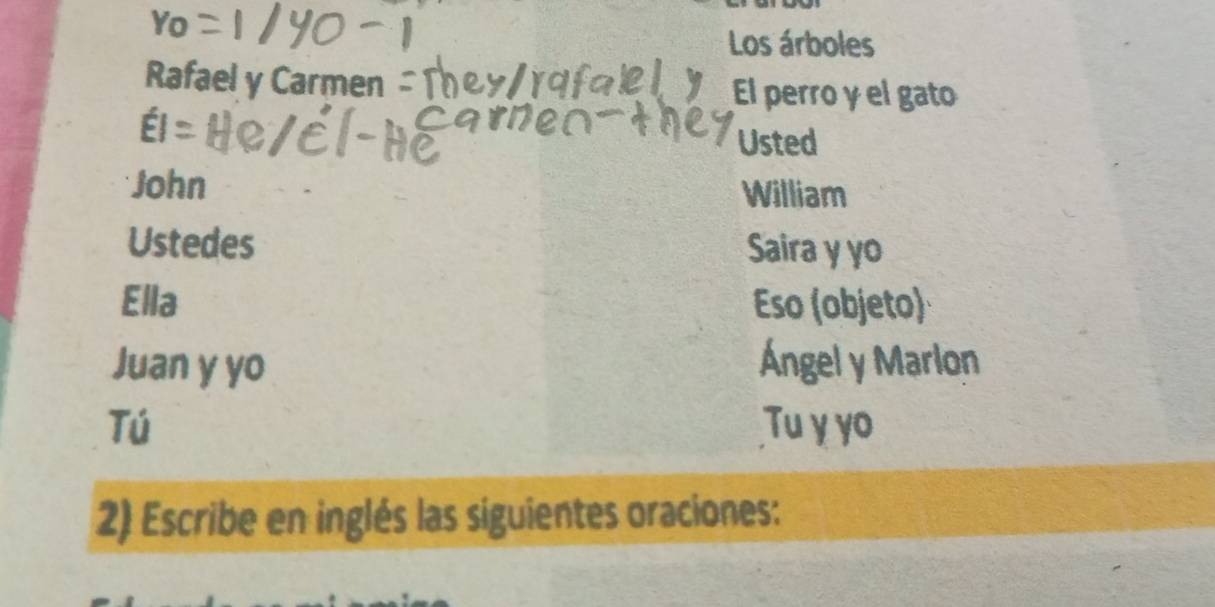 Yo =I/yo - I
Rafael y Carmen = They/rafael y
carmen - they
Él = He/él - He
John
Ustedes
Ella
Juan y yo
Tú
Los árboles
El perro y el gato
Usted
William
Saira y yo
Eso (objeto)
Ángel y Marlon
Tu y yo
2) Escribe en inglés las siguientes oraciones: